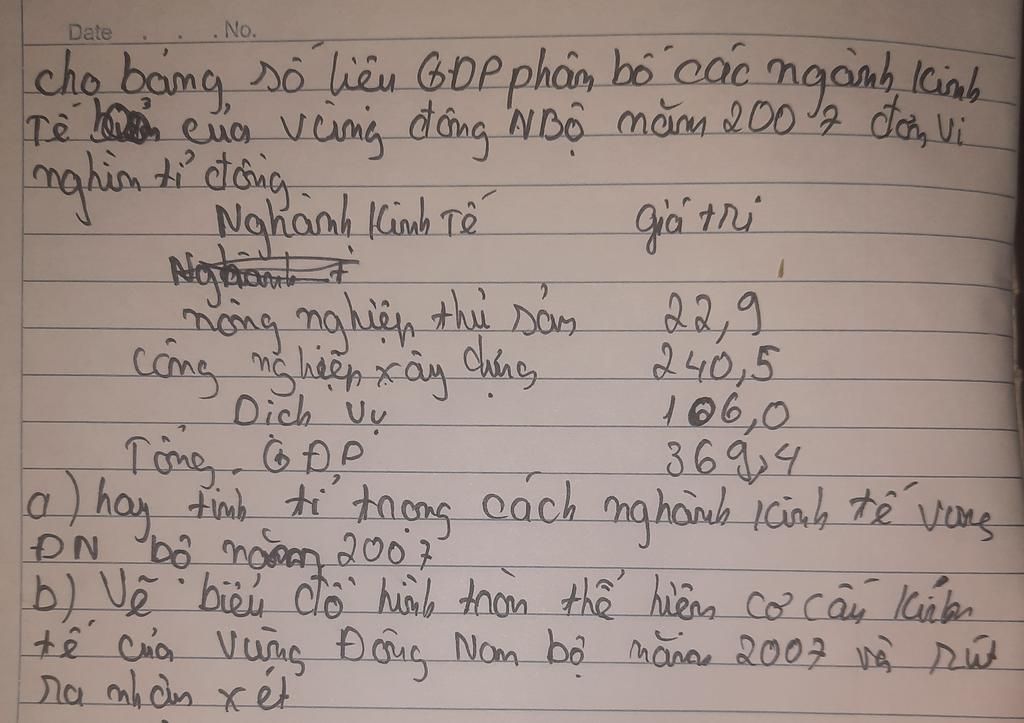 Date . . . No.
cho bảng số liệu GDP phân bố các ngành kinh
Tế của vùng đông NBộ năm 2007 đơn vi
nghìn tỉ đồng
Nghành kinh Tế giá tri
Nghành t
nông nghiệp thủ sản 22,9
Công nghiệp xây dựng 240,5
Dich vụ 106,0
Tổng GĐP 369,4
a) hay tính tỉ trong cách nghành kinh tế vung
ĐN bô năm 2007
b) Vẽ biểu đồ hình tròn thể hiên cơ cấu kinh
tế của vùng Đông Nam bộ năm 2007 và rút
ra nhân xét